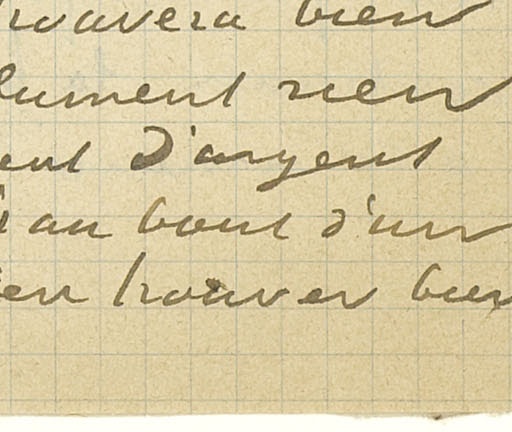 rouvera bien
lument rien
ent d'argent
i au bout d'un
en trouver bien